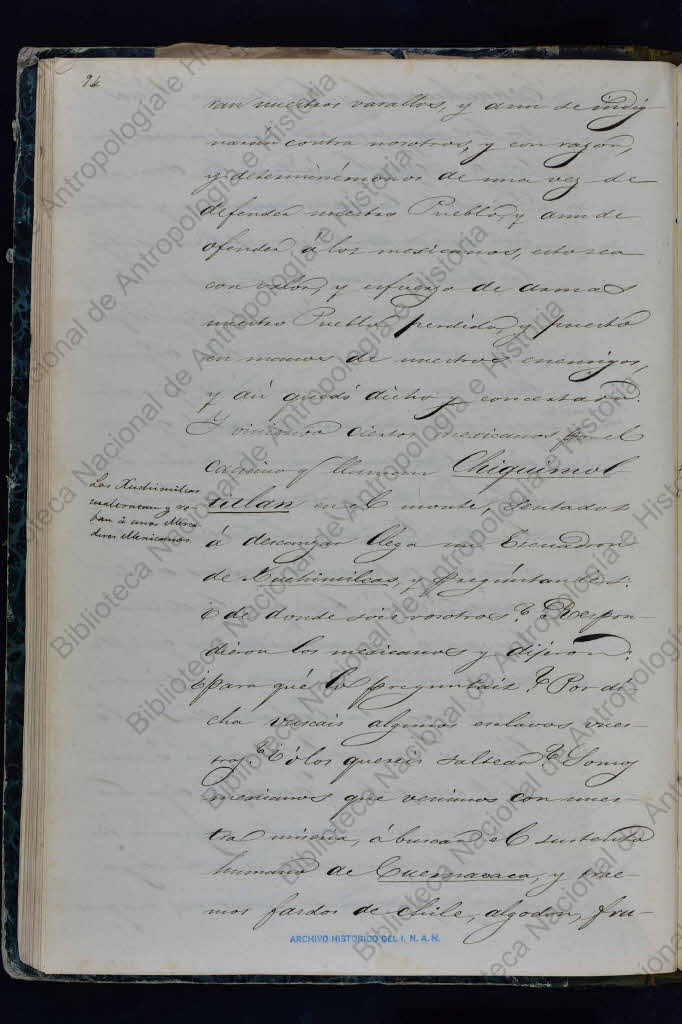 94
ran nuestros vasallos, y aun se indig
narán contra nosotros, y con razon,
y determinémonos de una vez de
defender nuestro Pueblo, y aun de
ofender á los mexicanos, esto sea
con valor, y esfuerzo de armas
nuestro Pueblo perdido, y puesto
en manos de nuestros enemigos,
y así quedó dicho y concertado.
Y viniendo ciertos mexicanos por el
camino q llaman Chiquimol
titlan en el monte, sentados
á descanzar llega un Escuadron
de Xuchimilcas, y pregúntanles:
¿de donde sois vosotros? Respon-
dieron los mexicanos y dijeron:
¿para qué lo preguntais? ¿Por di-
cha buscais algunos esclavos vues-
tros? ¿ó los quereis saltear? Somos
mexicanos que venimos con nues-
tra miseria, á buscar el sustento
humano de Cuernavaca, y trae-
mos fardos de chile, algodon, fru-
Los Xuchimilcas
maltratan y ro-
ban á unos Merca-
deres Mexicanos.
ARCHIVO HISTORICO DEL I. N. A. H.
Biblioteca Nacional de Antropología e Historia